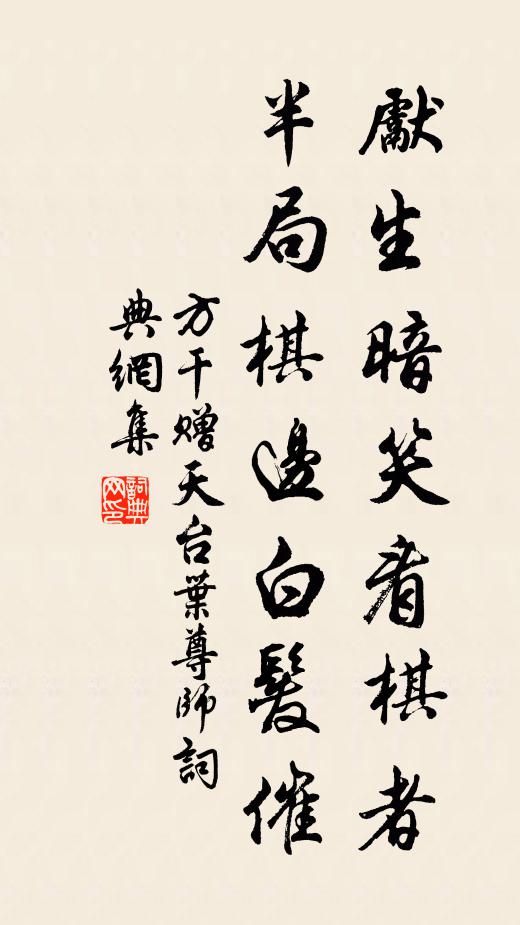 獻生暗笑看棋者
半局棋邊白髮催
方干赠天台葉尊師詞
典網集
詞典网印